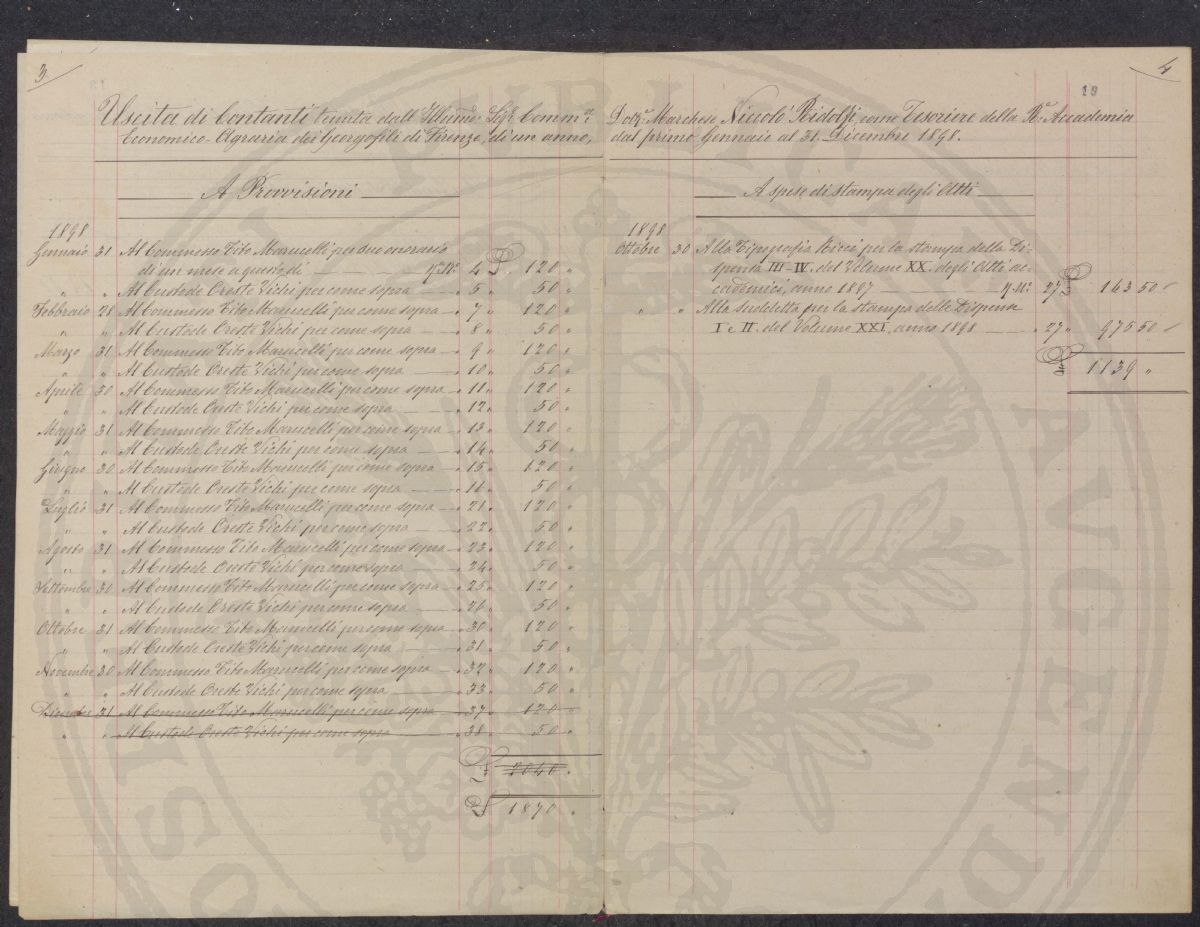 3
Uscita di Contanti tenuta dall' Illmo Sigr Commr
Economico-Agraria dei Georgofili di Firenze, di un anno,
A Provvisioni
1898
Gennaio 31 Al Commesso Tito Marucelli per suo onorario
di un mese a questo dì — 4 £ 120 "
" " Al Custode Oreste Vichi per come sopra — " 5 " 50 "
Febbraio 28 Al Commesso Tito Marucelli per come sopra — " 7 " 120 "
" " Al Custode Oreste Vichi per come sopra — " 8 " 50 "
Marzo 31 Al Commesso Tito Marucelli per come sopra " 9 " 120 "
" " Al Custode Oreste Vichi per come sopra — " 10 " 50 "
Aprile 30 Al Commesso Tito Marucelli per come sopra " 11 " 120 "
" " Al Custode Oreste Vichi per come sopra — " 12 " 50 "
Maggio 31 Al Commesso Tito Marucelli per come sopra — " 13 " 120 "
" " Al Custode Oreste Vichi per come sopra — " 14 " 50 "
Giugno 30 Al Commesso Tito Marucelli per come sopra — " 15 " 120 "
" " Al Custode Oreste Vichi per come sopra — " 16 " 50 "
Luglio 31 Al Commesso Tito Marucelli per come sopra — " 21 " 120 "
" " Al Custode Oreste Vichi per come sopra — " 22 " 50 "
Agosto 31 Al Commesso Tito Marucelli per come sopra " 23 " 120 "
" " Al Custode Oreste Vichi per come sopra — " 24 " 50 "
Settembre 30 Al Commesso Tito Marucelli per come sopra " 25 " 120 "
" " Al Custode Oreste Vichi per come sopra — " 26 " 50 "
Ottobre 31 Al Commesso Tito Marucelli per come sopra " 30 " 120 "
" " Al Custode Oreste Vichi per come sopra — " 31 " 50 "
Novembre 30 Al Commesso Tito Marucelli per come sopra — " 32 " 120 "
" " Al Custode Oreste Vichi per come sopra — " 33 " 50 "
Dicembre 31 Al Commesso Tito Marucelli per come sopra — " 37 " 120 "
" " Al Custode Oreste Vichi per come sopra — " 38 " 50 "
£ 2040 "
£ 1870 "
4
19
Dottr Marchese Niccolò Ridolfi come Tesoriere della R. Accademia
dal primo Gennaio al 31. Dicembre 1898.
A spese di stampa degli Atti
1898
Ottobre 30 Alla Tipografia Ricci per la stampa della Di-
spensa III-IV. del Volume XX. degli Atti ac-
cademici, anno 1897 — 27 £ 163 50
" " Alla suddetta per la stampa delle Dispense
I e II. del Volume XXI, anno 1898 — " 27 " 975 50
£ 1139 "